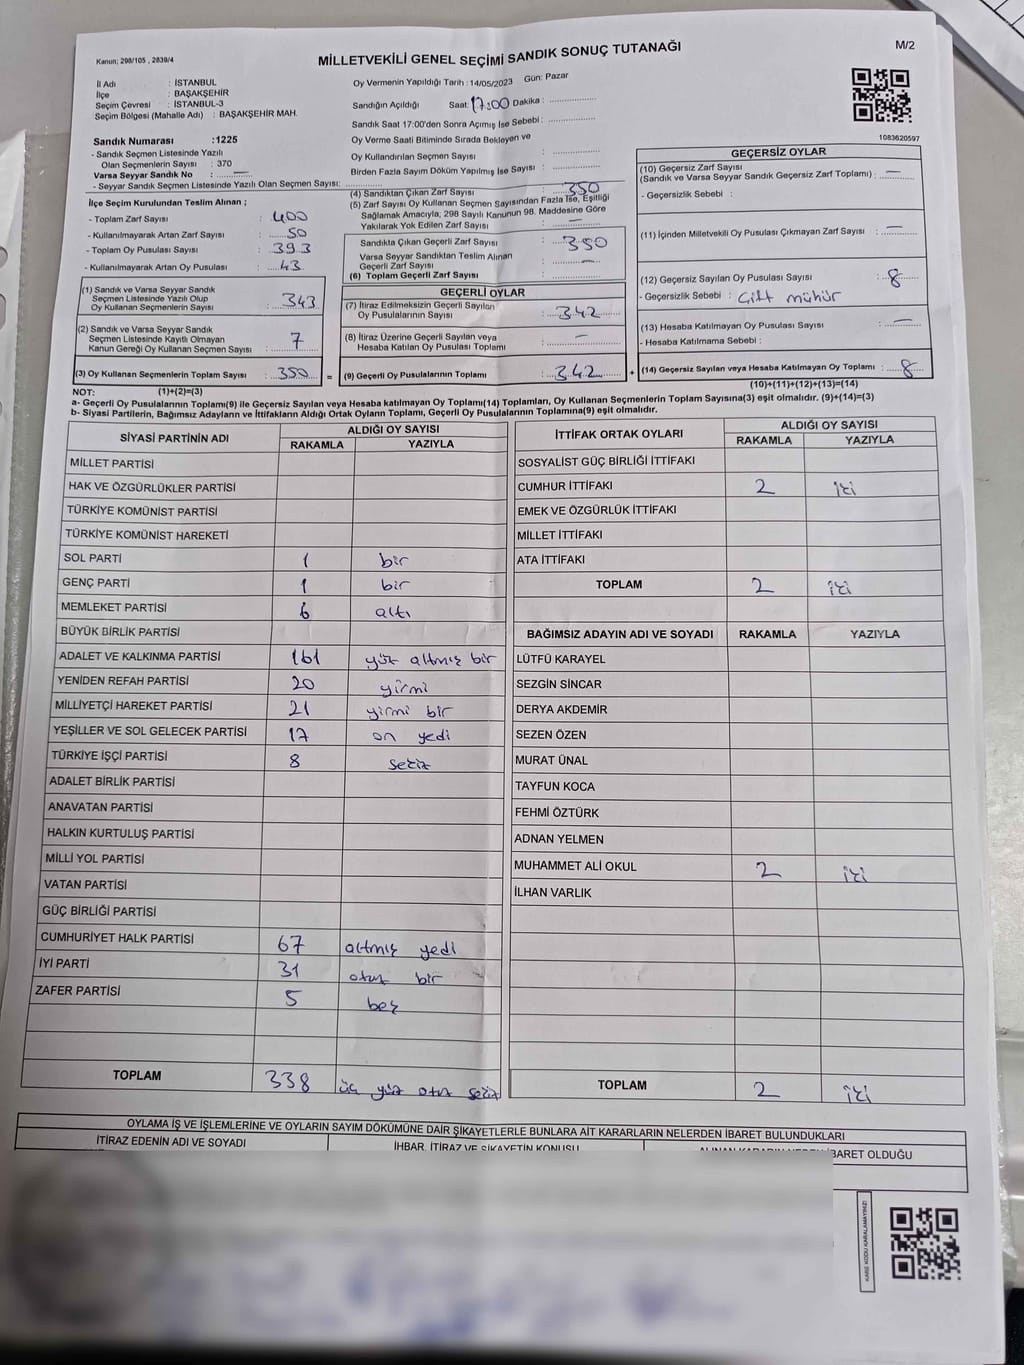 Kanun: 298/105 , 2839/4
MİLLETVEKİLİ GENEL SEÇİMİ SANDIK SONUÇ TUTANAĞI
M/2
İl Adı : İSTANBUL
İlçe : BAŞAKŞEHİR
Seçim Çevresi : İSTANBUL-3
Seçim Bölgesi (Mahalle Adı) : BAŞAKŞEHİR MAH.
Sandık Numarası :1225
- Sandık Seçmen Listesinde Yazılı
Olan Seçmenlerin Sayısı : 370
Varsa Seyyar Sandık No : —
- Seyyar Sandık Seçmen Listesinde Yazılı Olan Seçmen Sayısı:
İlçe Seçim Kurulundan Teslim Alınan ;
- Toplam Zarf Sayısı : 400
- Kullanılmayarak Artan Zarf Sayısı : 50
- Toplam Oy Pusulası Sayısı : 393
- Kullanılmayarak Artan Oy Pusulası : 43
(1) Sandık ve Varsa Seyyar Sandık
Seçmen Listesinde Yazılı Olup
Oy Kullanan Seçmenlerin Sayısı : 343
(2) Sandık ve Varsa Seyyar Sandık
Seçmen Listesinde Kayıtlı Olmayan
Kanun Gereği Oy Kullanan Seçmen Sayısı : 7
(3) Oy Kullanan Seçmenlerin Toplam Sayısı : 350 =
Oy Vermenin Yapıldığı Tarih : 14/05/2023 Gün: Pazar
Sandığın Açıldığı Saat: 17:00 Dakika :
Sandık Saat 17:00'den Sonra Açılmış İse Sebebi :
Oy Verme Saati Bitiminde Sırada Bekleyen ve
Oy Kullandırılan Seçmen Sayısı :
Birden Fazla Sayım Döküm Yapılmış İse Sayısı :
(4) Sandıktan Çıkan Zarf Sayısı : 350
(5) Zarf Sayısı Oy Kullanan Seçmen Sayısından Fazla İse, Eşitliği
Sağlamak Amacıyla, 298 Sayılı Kanunun 98. Maddesine Göre
Yakılarak Yok Edilen Zarf Sayısı : —
Sandıkta Çıkan Geçerli Zarf Sayısı : 350
Varsa Seyyar Sandıktan Teslim Alınan
Geçerli Zarf Sayısı : —
(6) Toplam Geçerli Zarf Sayısı :
GEÇERLİ OYLAR
(7) İtiraz Edilmeksizin Geçerli Sayılan
Oy Pusulalarının Sayısı : 342
(8) İtiraz Üzerine Geçerli Sayılan veya
Hesaba Katılan Oy Pusulası Toplamı : —
(9) Geçerli Oy Pusulalarının Toplamı : 342 +
1083620597
GEÇERSİZ OYLAR
(10) Geçersiz Zarf Sayısı
(Sandık ve Varsa Seyyar Sandık Geçersiz Zarf Toplamı) : —
- Geçersizlik Sebebi :
(11) İçinden Milletvekili Oy Pusulası Çıkmayan Zarf Sayısı : —
(12) Geçersiz Sayılan Oy Pusulası Sayısı : 8
- Geçersizlik Sebebi : Çift mühür
(13) Hesaba Katılmayan Oy Pusulası Sayısı : —
- Hesaba Katılmama Sebebi :
(14) Geçersiz Sayılan veya Hesaba Katılmayan Oy Toplamı : 8
NOT: (1)+(2)=(3) (10)+(11)+(12)+(13)=(14)
a- Geçerli Oy Pusulalarının Toplamı(9) ile Geçersiz Sayılan veya Hesaba katılmayan Oy Toplamı(14) Toplamları, Oy Kullanan Seçmenlerin Toplam Sayısına(3) eşit olmalıdır. (9)+(14)=(3)
b- Siyasi Partilerin, Bağımsız Adayların ve İttifakların Aldığı Ortak Oyların Toplamı, Geçerli Oy Pusulalarının Toplamına(9) eşit olmalıdır.
SİYASİ PARTİNİN ADI ALDIĞI OY SAYISI
RAKAMLA YAZIYLA
MİLLET PARTİSİ
HAK VE ÖZGÜRLÜKLER PARTİSİ
TÜRKİYE KOMÜNİST PARTİSİ
TÜRKİYE KOMÜNİST HAREKETİ
SOL PARTİ 1 bir
GENÇ PARTİ 1 bir
MEMLEKET PARTİSİ 6 altı
BÜYÜK BİRLİK PARTİSİ
ADALET VE KALKINMA PARTİSİ 161 yüz altmış bir
YENİDEN REFAH PARTİSİ 20 yirmi
MİLLİYETÇİ HAREKET PARTİSİ 21 yirmi bir
YEŞİLLER VE SOL GELECEK PARTİSİ 17 on yedi
TÜRKİYE İŞÇİ PARTİSİ 8 sekiz
ADALET BİRLİK PARTİSİ
ANAVATAN PARTİSİ
HALKIN KURTULUŞ PARTİSİ
MİLLİ YOL PARTİSİ
VATAN PARTİSİ
GÜÇ BİRLİĞİ PARTİSİ
CUMHURİYET HALK PARTİSİ 67 altmış yedi
İYİ PARTİ 31 otuz bir
ZAFER PARTİSİ 5 beş
TOPLAM 338 üç yüz otuz sekiz
İTTİFAK ORTAK OYLARI ALDIĞI OY SAYISI
RAKAMLA YAZIYLA
SOSYALİST GÜÇ BİRLİĞİ İTTİFAKI
CUMHUR İTTİFAKI 2 iki
EMEK VE ÖZGÜRLÜK İTTİFAKI
MİLLET İTTİFAKI
ATA İTTİFAKI
TOPLAM 2 iki
BAĞIMSIZ ADAYIN ADI VE SOYADI RAKAMLA YAZIYLA
LÜTFÜ KARAYEL
SEZGİN SİNCAR
DERYA AKDEMİR
SEZEN ÖZEN
MURAT ÜNAL
TAYFUN KOCA
FEHMİ ÖZTÜRK
ADNAN YELMEN
MUHAMMET ALİ OKUL 2 iki
İLHAN VARLIK
TOPLAM 2 iki
OYLAMA İŞ VE İŞLEMLERİNE VE OYLARIN SAYIM DÖKÜMÜNE DAİR ŞİKAYETLERLE BUNLARA AİT KARARLARIN NELERDEN İBARET BULUNDUKLARI
İTİRAZ EDENİN ADI VE SOYADI İHBAR, İTİRAZ VE ŞİKAYETİN KONUSU ALINAN KARARIN NEDEN İBARET OLDUĞU
KARE KODU KARALAMAYINIZ!